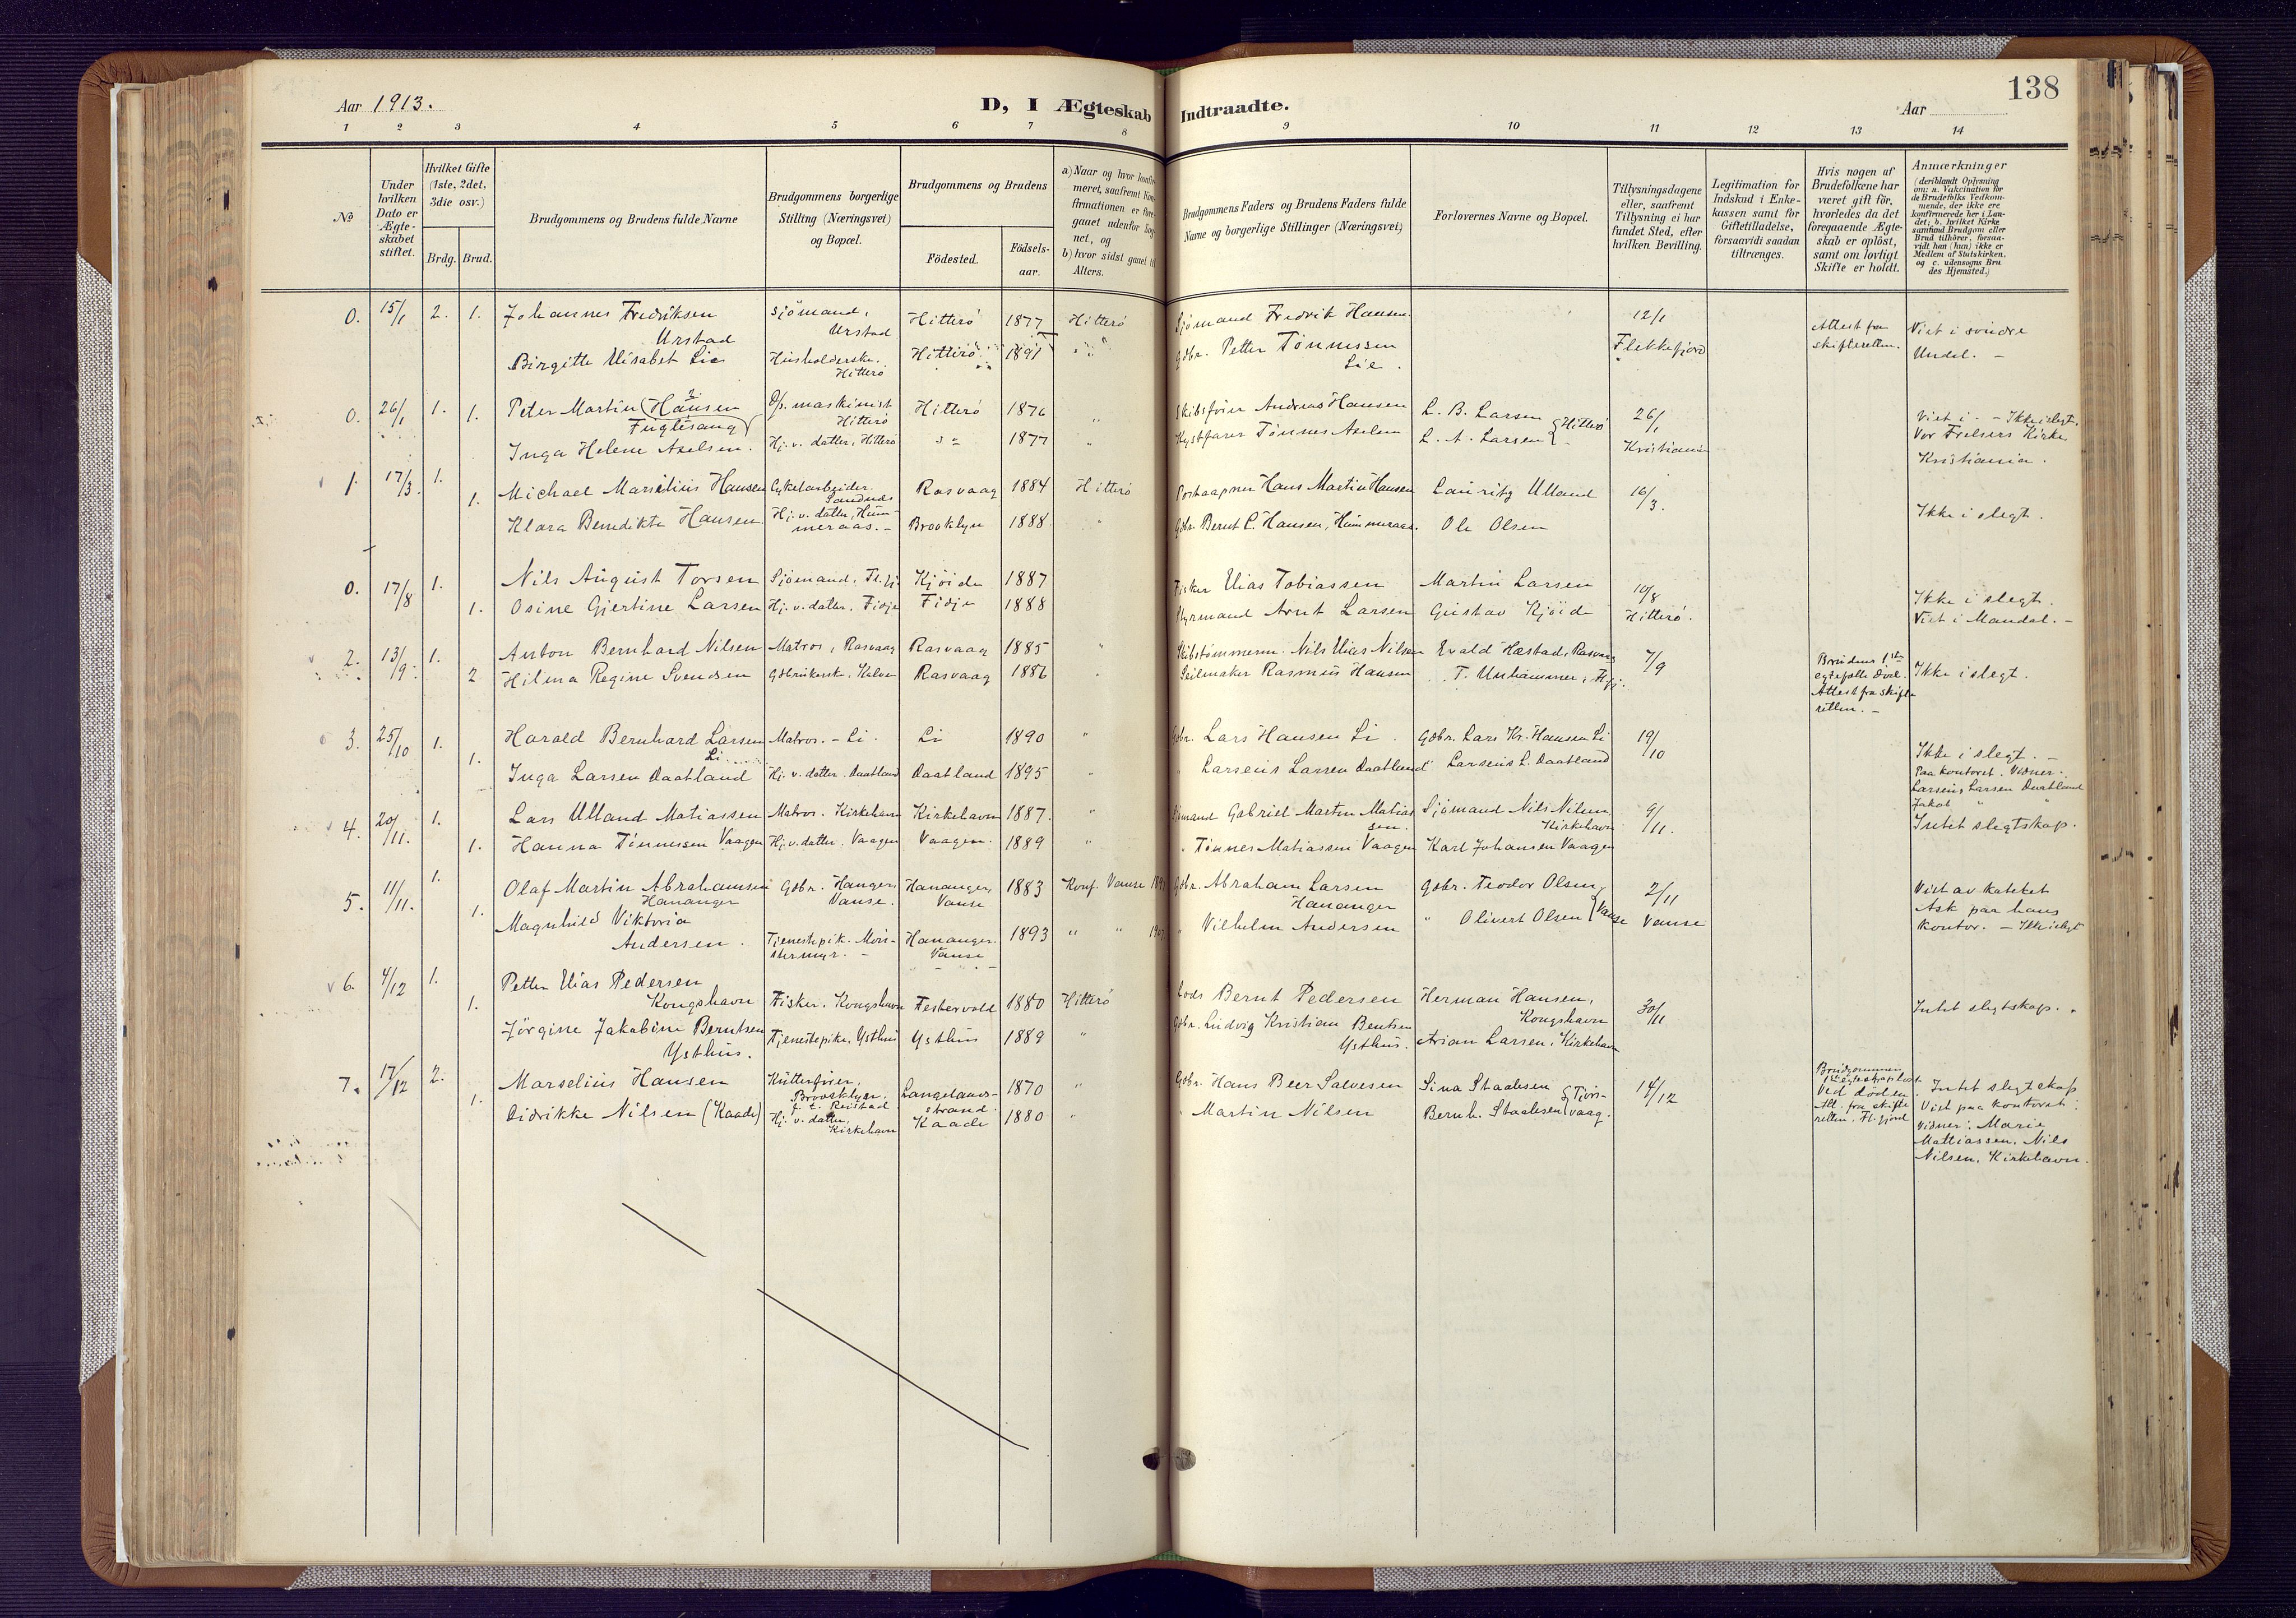 138
Aar 1913.
D, I Ægteskab Indtraadte.
Aar
1 2 3 4 5 6 7 8 9 10 11 12 13 14
No
Under hvilken Dato er Ægteskabet stiftet.
Hvilket Gifte (1ste, 2det, 3die osv.)
Brdg. Brud.
Brudgommens og Brudens fulde Navne
Brudgommens borgerlige Stilling (Næringsvei) og Bopæl.
Brudgommens og Brudens
Födested.
Födselsaar.
a) Naar og hvor konfirmeret, saafremt Konfirmationen er foregaaet udenfor Sognet, og
b) hvor sidst gaaet til Alters.
Brudgommens Faders og Brudens Faders fulde Navne og borgerlige Stillinger (Næringsvei)
Forlovernes Navne og Bopæl.
Tillysningsdagene eller, saafremt Tillysning ei har fundet Sted, efter hvilken Bevilling.
Legitimation for Indskud i Enkekassen samt for Giftetilladelse, forsaavidt saadan tiltrænges.
Hvis nogen af Brudefolkene har været gift för, hvorledes da det foregaaende Ægteskab er oplöst, samt om lovligt Skifte er holdt.
Anmærkninger
(deriblandt Oplysning om: a. Vakcination for de Brudefolks Vedkommende, der ikke ere konfirmerede her i Landet; b. hvilket Kirkesamfund Brudgom eller Brud tilhörer, forsaavidt han (hun) ikke er Medlem af Statskirken, og c. udensogns Brudes Hjemsted.)
0. 15/1 2. 1. Johannes Fredriksen Sjömand, Hitterö 1877 Hitterö Sjömand Fredrik Hansen 12/1 Attest fra Viet i söndre
Urstad Urstad skifteretten. Undal. -
Birgitte Elisabet Lie Husholderske, Hitterö 1891 " Gdbr. Petter Tönnessen Flekkefjord
Hitterö Lie.
0. 26/1 1. 1. Peter Martin (Hansen D/s. maskinist Hitterö 1876 " Skibsförer Andreas Hansen L. B. Larsen Hitterö 26/1 Viet i - Ikke i slegt.
Fuglesang) Hitterö Vor Frelsers Kirke
Inga Helene Axelsen. Hj. v. datter, Hitterö 1877 " Kystfarer Tönnes Axelsen L. A. Larsen Kristiania Kristiania.
1. 17/3. 1. Michael Marselius Hansen Cykelarbeider. Rasvaag 1884 Hitterö Postaapner Hans Martin Hansen Lauritz Ulland 16/3.
Sandnes
1. Klara Benedikte Hansen. Hj. v. datter, Hummeraas. - Brooklyn 1888. " Gdbr. Bernt C. Hansen, Hummeraas. Ole Olsen Ikke i slegt.
0. 17/8 1. Nils August Torsen Sjömand, Fl.fj. Kjöide 1887 Fisker Elias Tobiassen Martin Larsen 10/8 Ikke i slegt.
1. Osine Gjertine Larsen Hj. v. datter, Fidje Fidje 1888 Styrmand Arnt Larsen Gustav Kjöide Hitterö. Viet i Mandal. -
2. 13/9. 1. Anton Bernhard Nilsen Matros, Rasvaag Rasvaag 1885 " Skibstömmerm. Nils Elias Nilsen Evald Hæstad, Rasvaag 7/9 Brudens 1ste
2 Hilma Regine Svendsen Gdbrukerske, Kalven Rasvaag 1886 Seilmaker Rasmus Hansen T. Unhammer, Ikke i slegt.
egtefælle död.
Attest fra skifteretten. -
3. 25/10 1. Harald Bernhard Larsen Matros. - Li. Li 1890 " Gdbr. Lars Hansen Li. Gdbr. Lars Kr. Hansen Li 19/10
Li Ikke i slegt. -
1. Inga Larsen Daatland Hj. v. datter, Daatland Daatland 1895 " " Larseus Larsen Daatland Larseus L. Daatland Paa kontoret. Vidner:
Larseus Larsen Daatland
Jakob " "
4. 20/11. 1. Lars Ulland Matiassen Matros. Kirkehavn Kirkehavn 1887. " Sjömand Gabriel Martin Matiassen. Sjömand Nils Nilsen 9/11. Intet slegtskap.
Kirkehavn
1. Hanna Tönnessen Vaagen Hj. v. datter, Vaagen Vaagen. 1889 " " Tönnes Matiassen Vaagen Karl Johansen Vaagen
5. 11/11. 1. Olaf Martin Abrahamsen Gdbr. Hananger, Hananger, 1883 Konf. Vanse Gdbr. Abraham Larsen Gdbr. Teodor Olsen, 2/11 Viet av kateket
Hananger Vanse. Vanse Hananger Vanse Ask paa hans
1. Magnhild Viktoria Andersen. Tjenestepike. Hananger. 1893 " " " Vilhelm Andersen " Olivert Olsen Vanse kontor. - Ikke i slegt
Vanse
6. 4/12 1. Petter Elias Pedersen
1. Kongshavn Fisker, Kongshavn Festervold 1880 Hitterö Lods Bernt Pedersen Herman Hansen, 30/11 Intet slegtskap.
Kongshavn
Jörgine Jakobine Berntsen Tjenestepike, Ysthus Ysthus 1889 " Gdbr. Ludvig Kristian Bentsen
Ysthus. Ysthus. Arian Larsen, Kirkehavn
7. 17/12 2. Marselius Hansen Kutterförer, Langelandsstrand. 1870 " Gdbr. Hans Beer Salvesen Sina Staalesen 14/12 Brudgommens Intet slegtskap
Brooklyn, 1ste egteskap löst Viet paa kontoret:
f. t. Reistad ved döden
1. Didrikke Nilsen (Kaade) Hj. v. datter, Kaade 1880 " " Martin Nilsen Bernh. Staalesen Att. fra skifteretten, Fl.fjord Vidner: Marie
Kirkehavn Mattiassen. Nils
Nilsen, Kirkehavn.